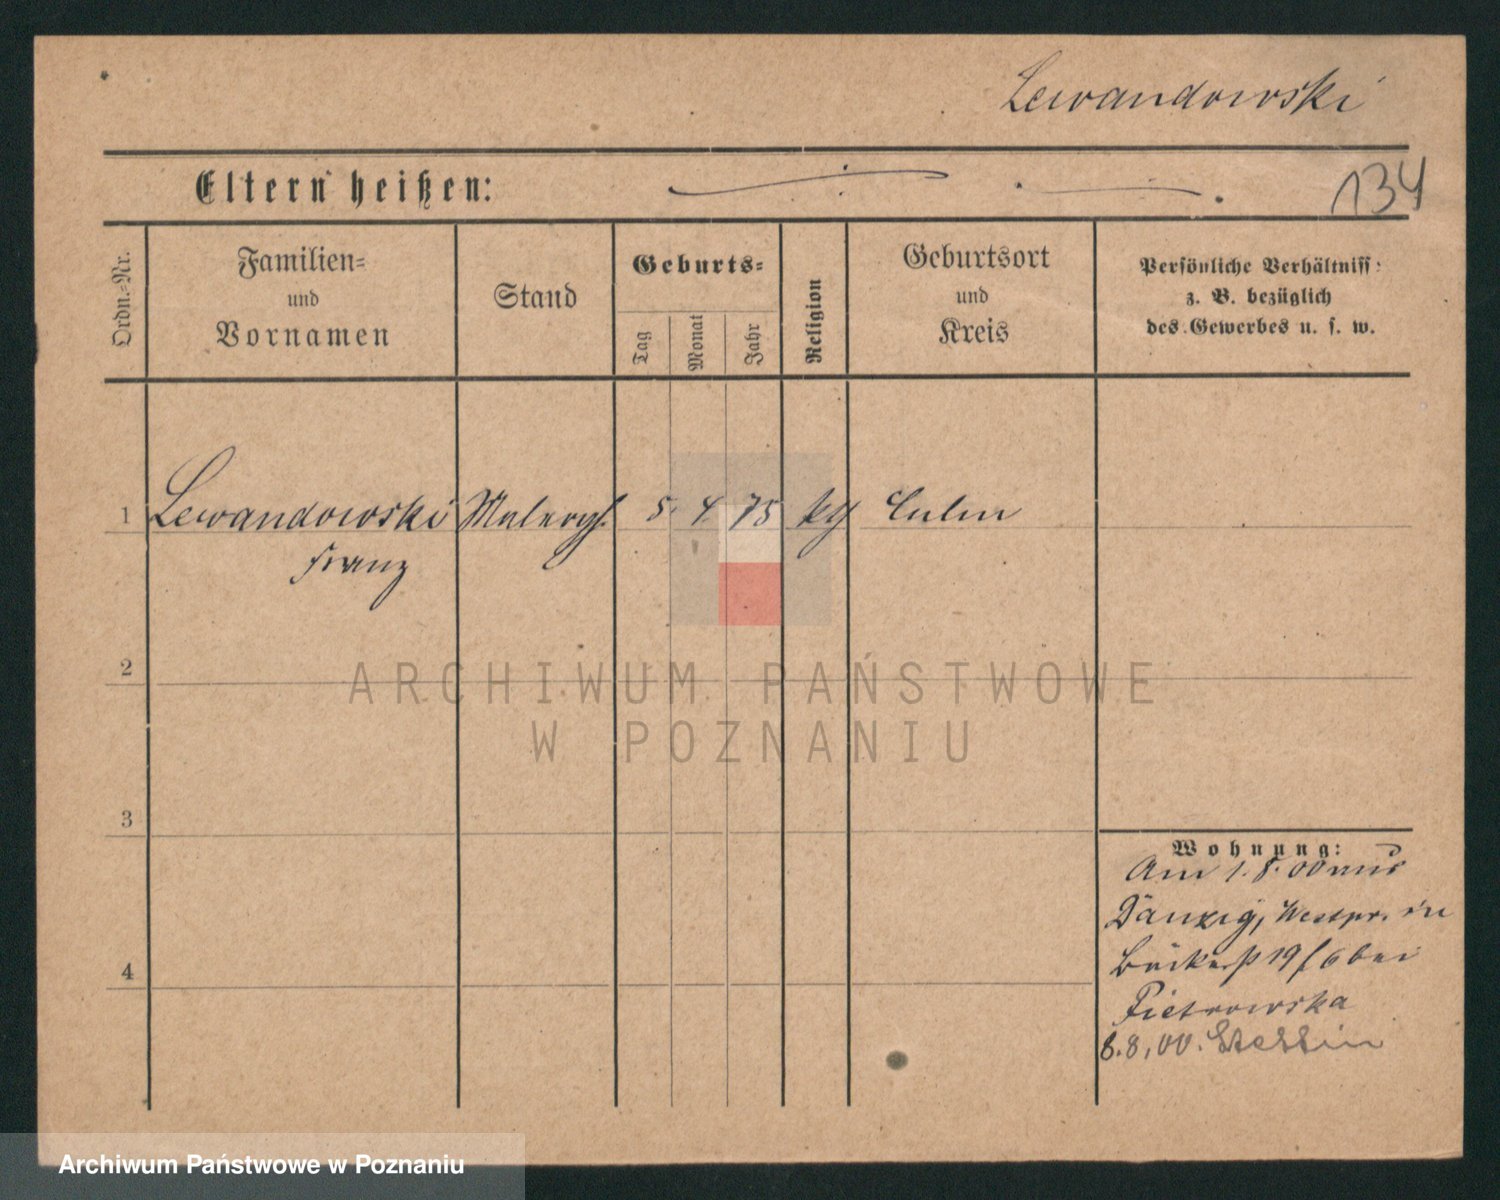 Lewandowski
Eltern heißen:
134
Ordn.-Nr.
Familien-
und
Vornamen
Stand
Geburts-
Tag
Monat
Jahr
Religion
Geburtsort
und
Kreis
Persönliche Verhältniss:
z. B. bezüglich
des Gewerbes u. s. w.
1 Lewandowski Malergh. 5. 4. 75 kth Culm
Franz
2
ARCHIWUM PAŃSTWOWE
W POZNANIU
3
4
Wohnung:
Am 1. 8. 00 aus
Danzig, Westpr. in
Bäckerstr 19/6 bei
Pietrowska
8.8.00. Stettin
Archiwum Państwowe w Poznaniu